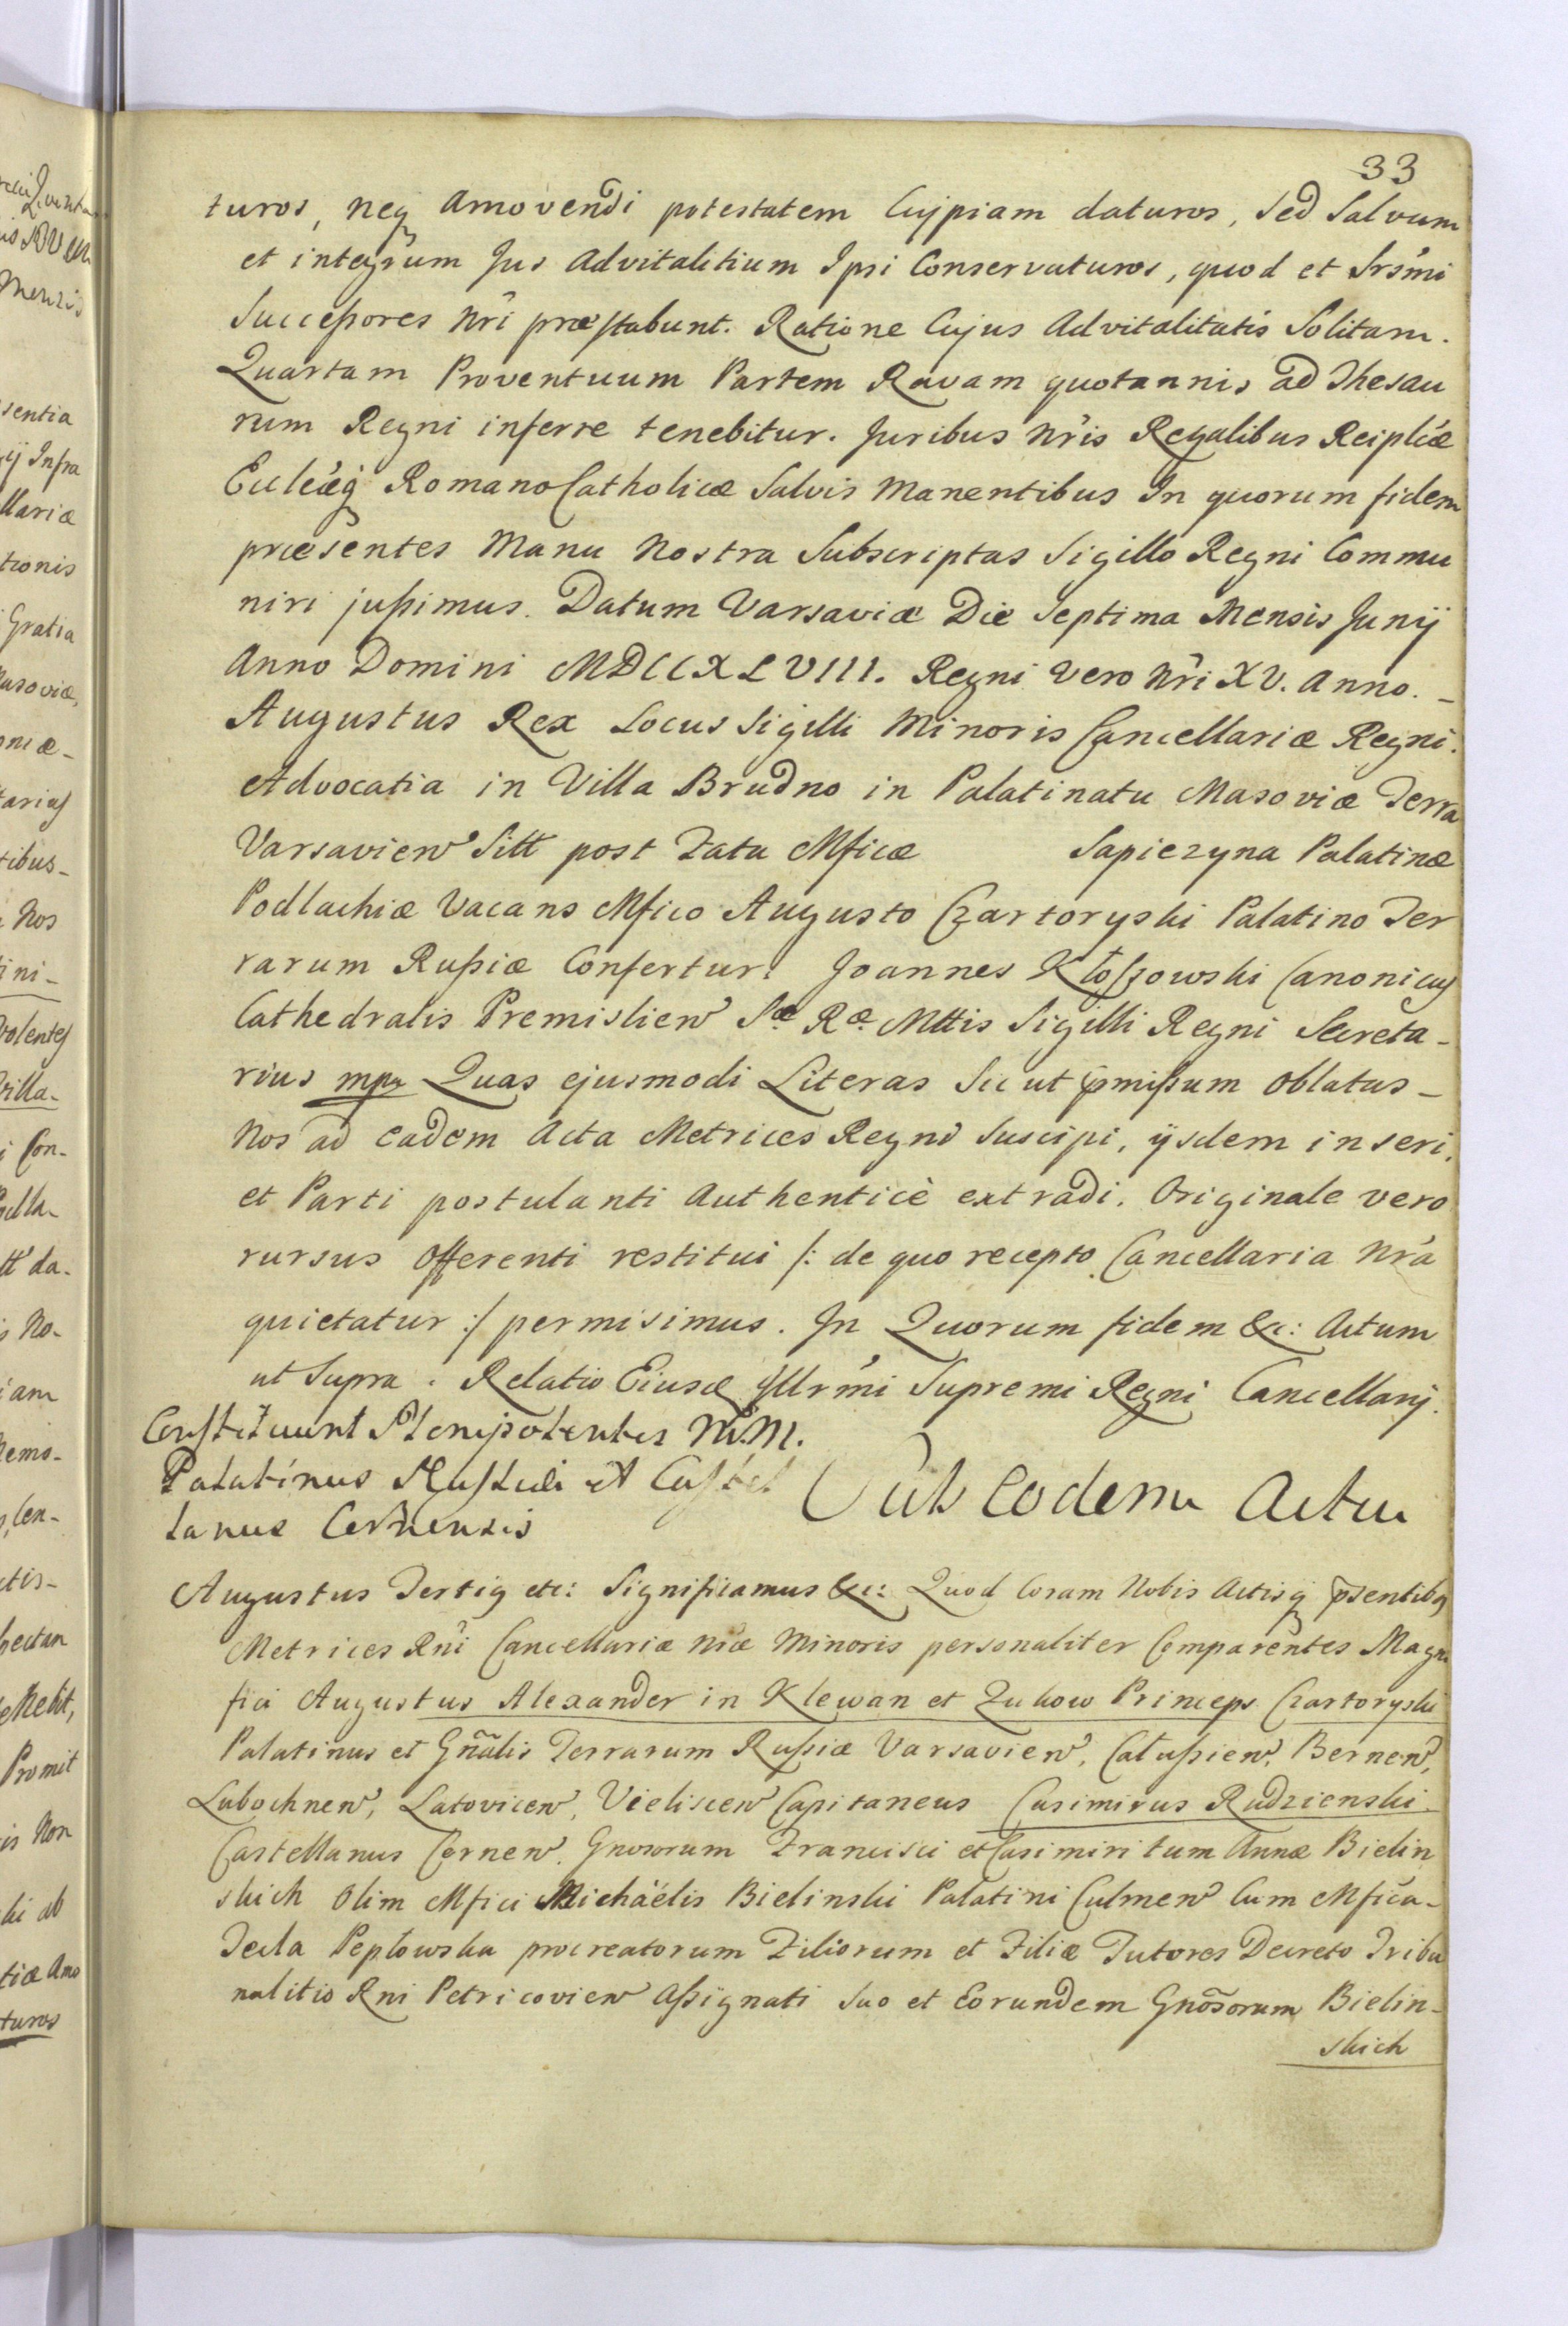 33
turos, neq amovendi potestatem Cujpiam daturos, sed Salvum
et integrum Jus Advitalitium Ipsi Conservaturos, quod et Srsmi
Successores Nri præstabunt. Ratione Cujus Advitalitatis Solitam.
Quartam Proventuum Partem Ravam quotannis ad Thesau
rum Regni inferre tenebitur. Juribus Nris Regalibus Reiplicæ
Eccleæq Romano Catholicæ Salvis Manentibus In quorum fidem
præsentes Manu Nostra Subscriptas Sigillo Regni Commu
niri jussimus. Datum Varsaviæ Die Septima Mensis Junij
Anno Domini MDCCXLVIII. Regni Vero Nri XV. Anno. _
Augustus Rex Locus Sigilli Minoris Cancellariæ Regni.
Advocatia in Villa Brudno in Palatinatu Masoviæ Terra
Varsavien Sitt post Fata Mficæ Sapiezyna Palatinæ
Podlachiæ Vacans Mfico Augusto Czartoryski Palatino Ter
rarum Russiæ Confertur. Joannes Kłoszowski Canonicus
Cathedralis Premislien Sæ Ræ Mttis Sigilli Regni Secreta-
rius mpr Quas ejusmodi Literas Sic ut pmissum Oblatas_
Nos ad eadem Acta Metrices Regni Suscipi, ijsdem inseri,
et Parti postulanti Authenticè extradi. Originale vero
rursus Offerenti restitui /: de quo recepto Cancellaria Nra
quietatur :/ permisimus. In Quorum fidem &c: Actum
ut Supra. Relatio Eiusd Illrmi Supremi Regni Cancellarij.
Constituunt Plenipotentes M.M.
Palatinus Russiæ et Castel
lanus Cernensis
Sub Eodem Actu
Augustus Tertiq etc: Significamus &c: Quod Coram Nobis Actisq psentibq
Metrices Rni Cancellariæ Nræ Minoris personaliter Comparentes Magni
fici Augustus Alexander in Klewan et Zukow Princeps Czartoryski
Palatinus et Gnalis Terrarum Russiæ Varsavien, Catussien, Bernen,
Lubochnen, Latovicen, Vieliscen Capitaneus Casimirus Rudzienski
Castellanus Cernen. Gnosorum Francisci et Casimiri tum Annæ Bielin
skich Olim Mfici Michaëlis Bielinski Palatini Culmen Cum Mfica-
Tecla Pepłowska procreatorum Filiorum et Filiæ Tutores Decreto Tribu
nalitio Rni Petricovien Assignati Suo et Eorundem Gnosorum Bielin-
skich